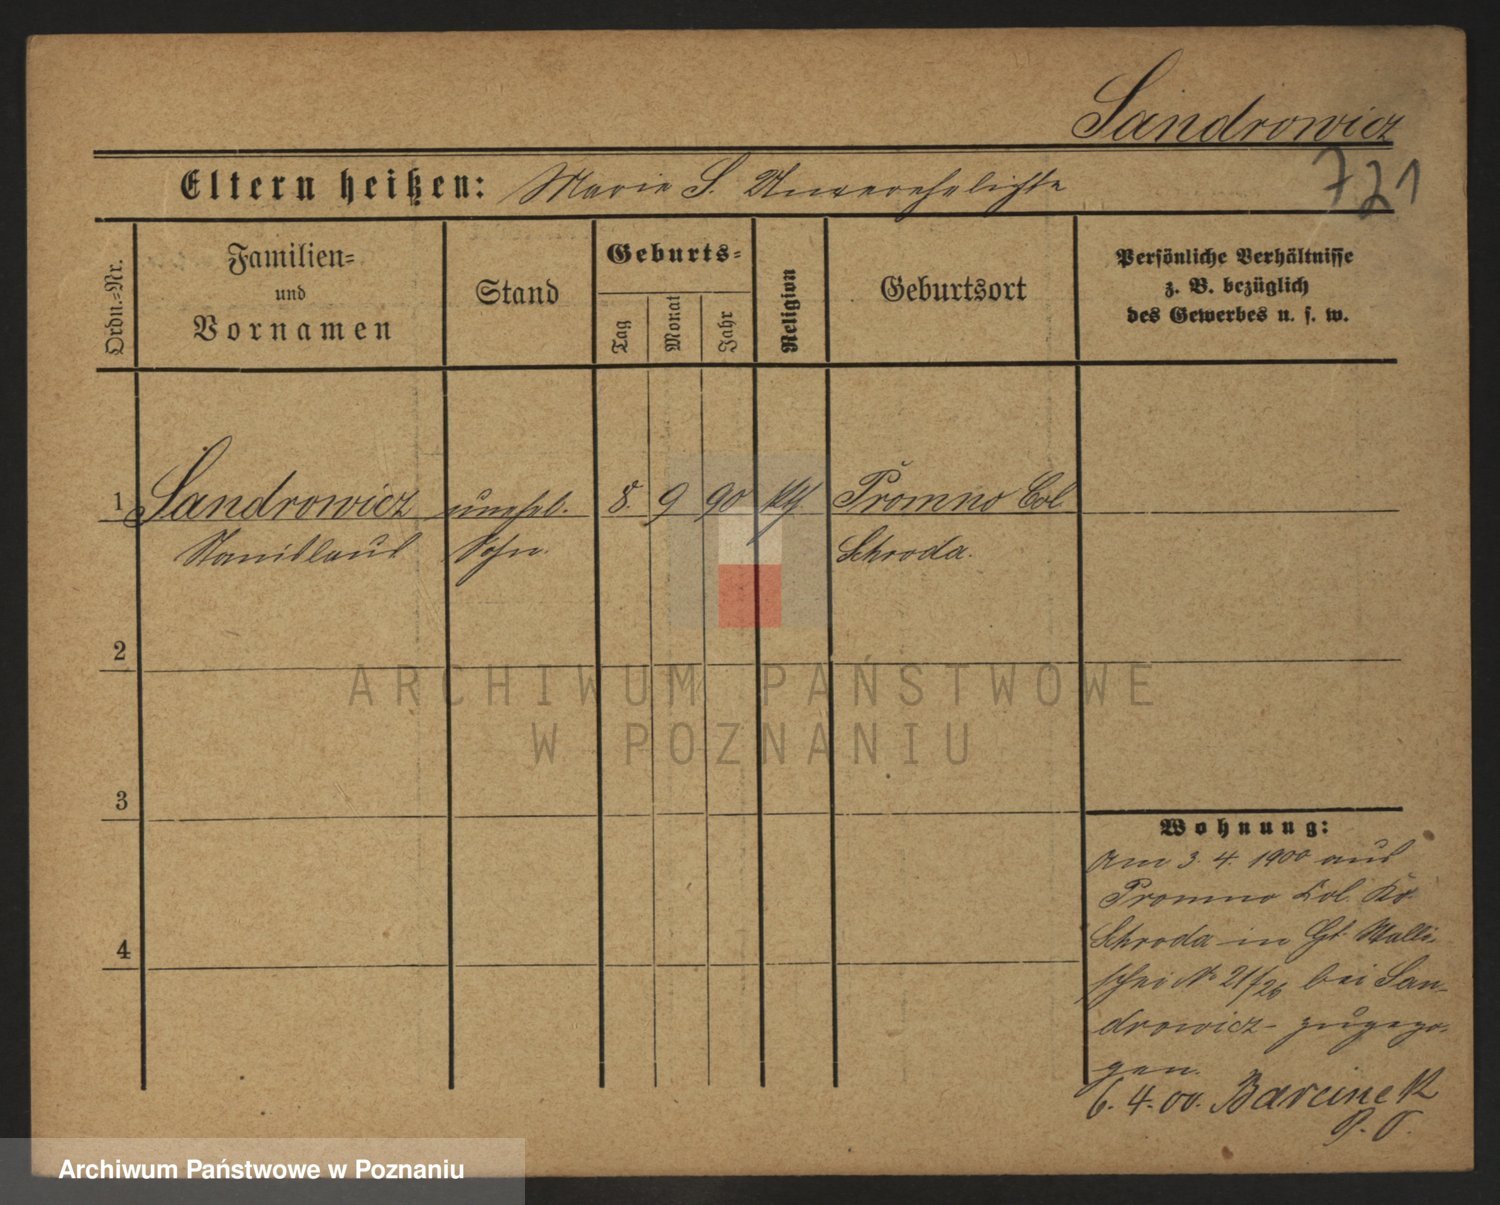 Sandrowicz
721
Eltern heißen: Marie S. Unverehelichte
Ordn.-Nr.
Familien-
und
Vornamen
Stand
Geburts-
Tag
Monat
Jahr
Religion
Geburtsort
Persönliche Verhältnisse
z. B. bezüglich
des Gewerbes u. s. w.
1 Sandrowicz unehel. 8. 9 90 kth. Promno Col.
Stanislaus Sohn. Schroda.
2
3
4
Wohnung:
Am 3. 4. 1900 aus
Promno Col. Kr.
Schroda in Gt. Walli-
schei No 21/26 bei San-
drowicz zugezo-
gen.
6. 4. 00. Barcinek
P. S.
ARCHIWUM PAŃSTWOWE
W POZNANIU
Archiwum Państwowe w Poznaniu